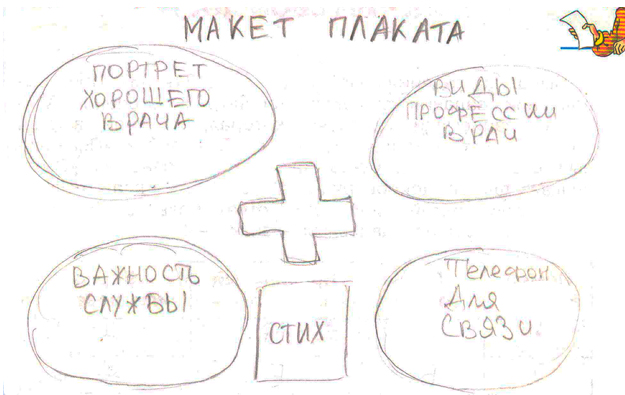 МАКЕТ ПЛАКАТА
ПОРТРЕТ
ХОРОШЕГО
ВРАЧА
ВИДЫ
ПРОФЕССИИ
ВРАЧ
ВАЖНОСТЬ
СЛУЖБЫ
СТИХ
Телефон
Для
СВЯЗИ